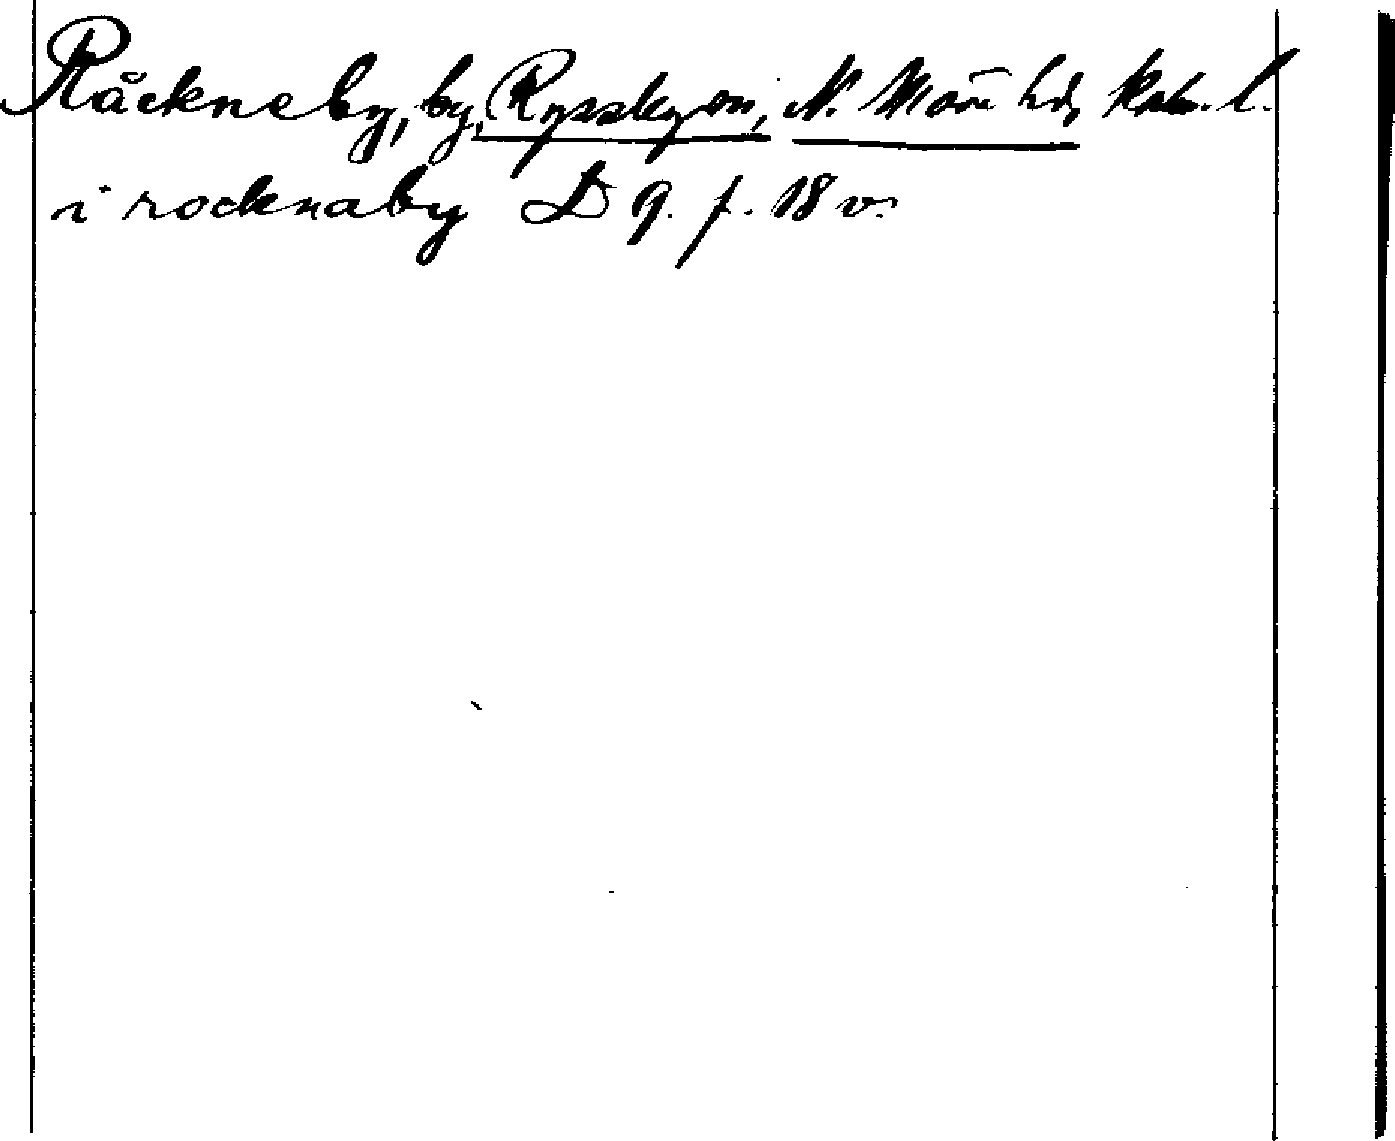 Råckneby, by, Ryssby sn, N. Möre hd, Kalm. l.
i rocknaby D 9. f. 18 v.